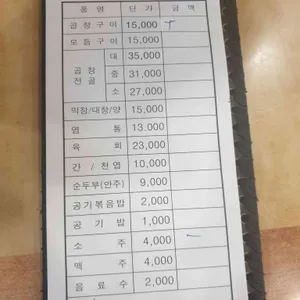 품 명 단 가 금 액
곱 창 구 이 15,000
모 듬 구 이 15,000
곱 창 전 골 대 35,000
중 31,000
소 27,000
막창/대창/양 15,000
염 통 13,000
육 회 23,000
간 / 천엽 10,000
순두부(안주) 9,000
공기볶음밥 2,000
공 기 밥 1,000
소 주 4,000
맥 주 4,000
음 료 수 2,000